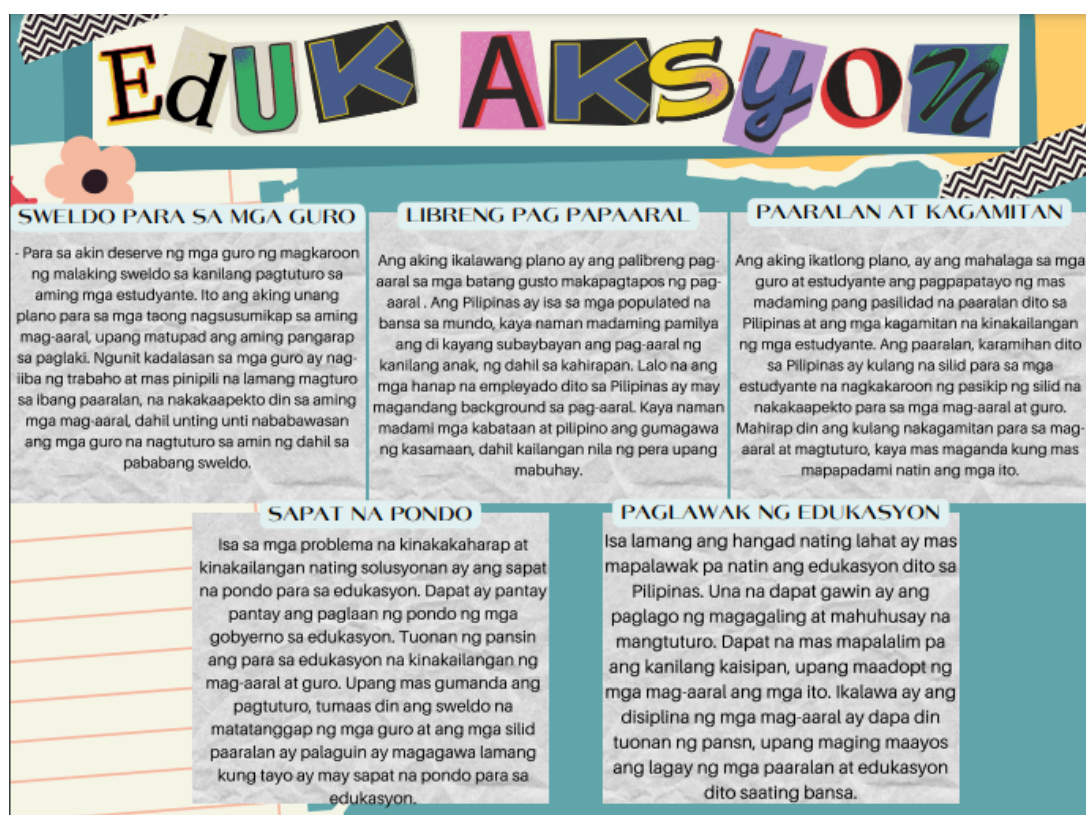 EdUK AKSyON
SWELDO PARA SA MGA GURO
- Para sa akin deserve ng mga guro ng magkaroon
ng malaking sweldo sa kanilang pagtuturo sa
aming mga estudyante. Ito ang aking unang
plano para sa mga taong nagsusumikap sa aming
mag-aaral, upang matupad ang aming pangarap
sa paglaki. Ngunit kadalasan sa mga guro ay nag-
iiba ng trabaho at mas pinipili na lamang magturo
sa ibang paaralan, na nakakaapekto din sa aming
mga mag-aaral, dahil unting unti nababawasan
ang mga guro na nagtuturo sa amin ng dahil sa
pababang sweldo.
LIBRENG PAG PAPAARAL
Ang aking ikalawang plano ay ang palibreng pag-
aaral sa mga batang gusto makapagtapos ng pag-
aaral . Ang Pilipinas ay isa sa mga populated na
bansa sa mundo, kaya naman madaming pamilya
ang di kayang subaybayan ang pag-aaral ng
kanilang anak, ng dahil sa kahirapan. Lalo na ang
mga hanap na empleyado dito sa Pilipinas ay may
magandang background sa pag-aaral. Kaya naman
madami mga kabataan at pilipino ang gumagawa
ng kasamaan, dahil kailangan nila ng pera upang
mabuhay.
PAARALAN AT KAGAMITAN
Ang aking ikatlong plano, ay ang mahalaga sa mga
guro at estudyante ang pagpapatayo ng mas
madaming pang pasilidad na paaralan dito sa
Pilipinas at ang mga kagamitan na kinakailangan
ng mga estudyante. Ang paaralan, karamihan dito
sa Pilipinas ay kulang na silid para sa mga
estudyante na nagkakaroon ng pasikip ng silid na
nakakaapekto para sa mga mag-aaral at guro.
Mahirap din ang kulang nakagamitan para sa mag-
aaral at magtuturo, kaya mas maganda kung mas
mapapadami natin ang mga ito.
SAPAT NA PONDO
Isa sa mga problema na kinakakaharap at
kinakailangan nating solusyonan ay ang sapat
na pondo para sa edukasyon. Dapat ay pantay
pantay ang paglaan ng pondo ng mga
gobyerno sa edukasyon. Tuonan ng pansin
ang para sa edukasyon na kinakailangan ng
mag-aaral at guro. Upang mas gumanda ang
pagtuturo, tumaas din ang sweldo na
matatanggap ng mga guro at ang mga silid
paaralan ay palaguin ay magagawa lamang
kung tayo ay may sapat na pondo para sa
edukasyon.
PAGLAWAK NG EDUKASYON
Isa lamang ang hangad nating lahat ay mas
mapalawak pa natin ang edukasyon dito sa
Pilipinas. Una na dapat gawin ay ang
paglago ng magagaling at mahuhusay na
mangtuturo. Dapat na mas mapalalim pa
ang kanilang kaisipan, upang maadopt ng
mga mag-aaral ang mga ito. Ikalawa ay ang
disiplina ng mga mag-aaral ay dapa din
tuonan ng pansn, upang maging maayos
ang lagay ng mga paaralan at edukasyon
dito saating bansa.